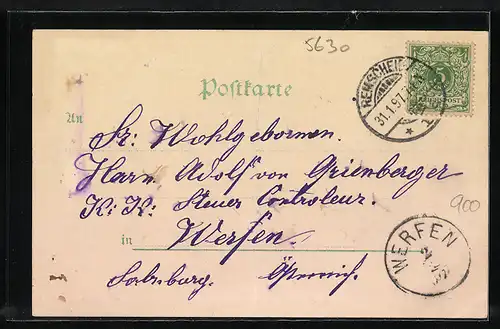 5630
Postkarte
REMSCHEID
31.1.97
5
REICHSPOST
An
Sr. Wohlgebornen.
Herrn Adolf von Grienberger
K: K: Steuer Controleur.
900
in Werfen.
WERFEN
Salzburg. Österreich.